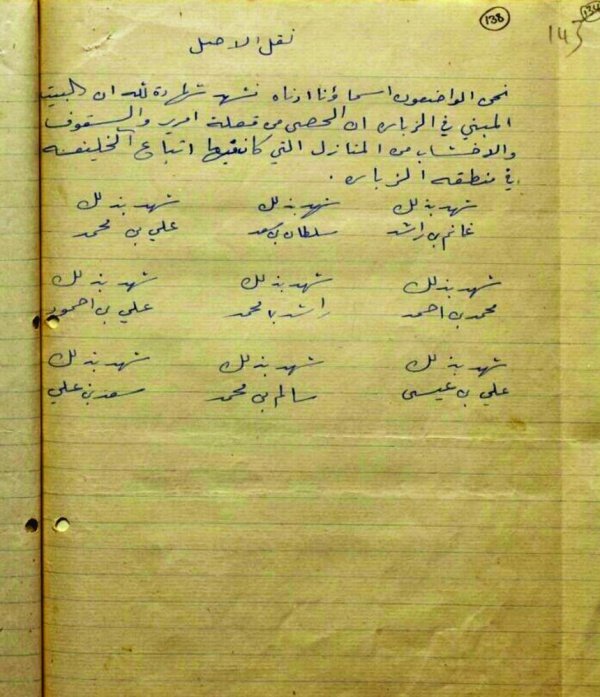 138
134
145
نقل الاصل
نحن الواضعون اسماؤنا ادناه نشهد شهادة لله ان البيت
المبني في الزباره ان الحصى من قصلة امرير والسقوف
والاخشاب من المنازل التي كانو فيها اتباع آلخليفه
في منطقه الزباره .
شهد بذلك شهد بذلك شهد بذلك
غانم بن راشد سلطان بن علي بن محمد
شهد بذلك شهد بذلك شهد بذلك
محمد بن احمد راشد بن محمد علي بن احمود
شهد بذلك شهد بذلك شهد بذلك
علي بن عيسى سالم بن محمد سعد بن علي